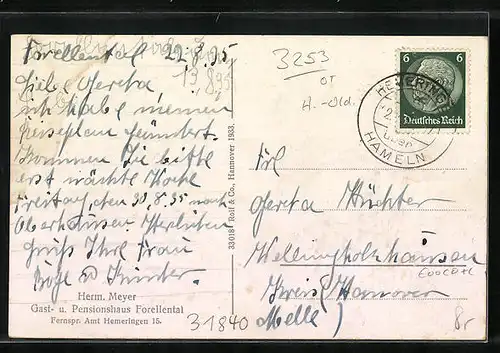 Forellental 22.8.35
13.8.95
Liebe Gereta,
ich habe meinen
Reiseplan geändert.
Kommen Sie bitte
erst nächste Woche
Freitag, den 30.8.35 nach
Oberhausen.
Gruß Ihre Frau
u Kinder.
Herm. Meyer
Gast- u. Pensionshaus Forellental
Fernspr. Amt Hemeringen 15.
33018 Rolf & Co., Hannover 1933.
3253
6 6
Deutsches Reich
HEMERINGEN
über
HAMELN
Frl
Gereta
Wellingholzhausen
Kreis Hannover
Melle)
31840